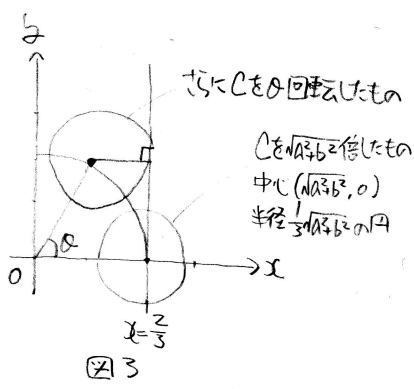 y
さらにCをθ回転したもの
Cを√a²+b²倍したもの
中心(√a²+b², 0)
半径 1/3√a²+b² の円
θ
O
x
x=2/3
図3